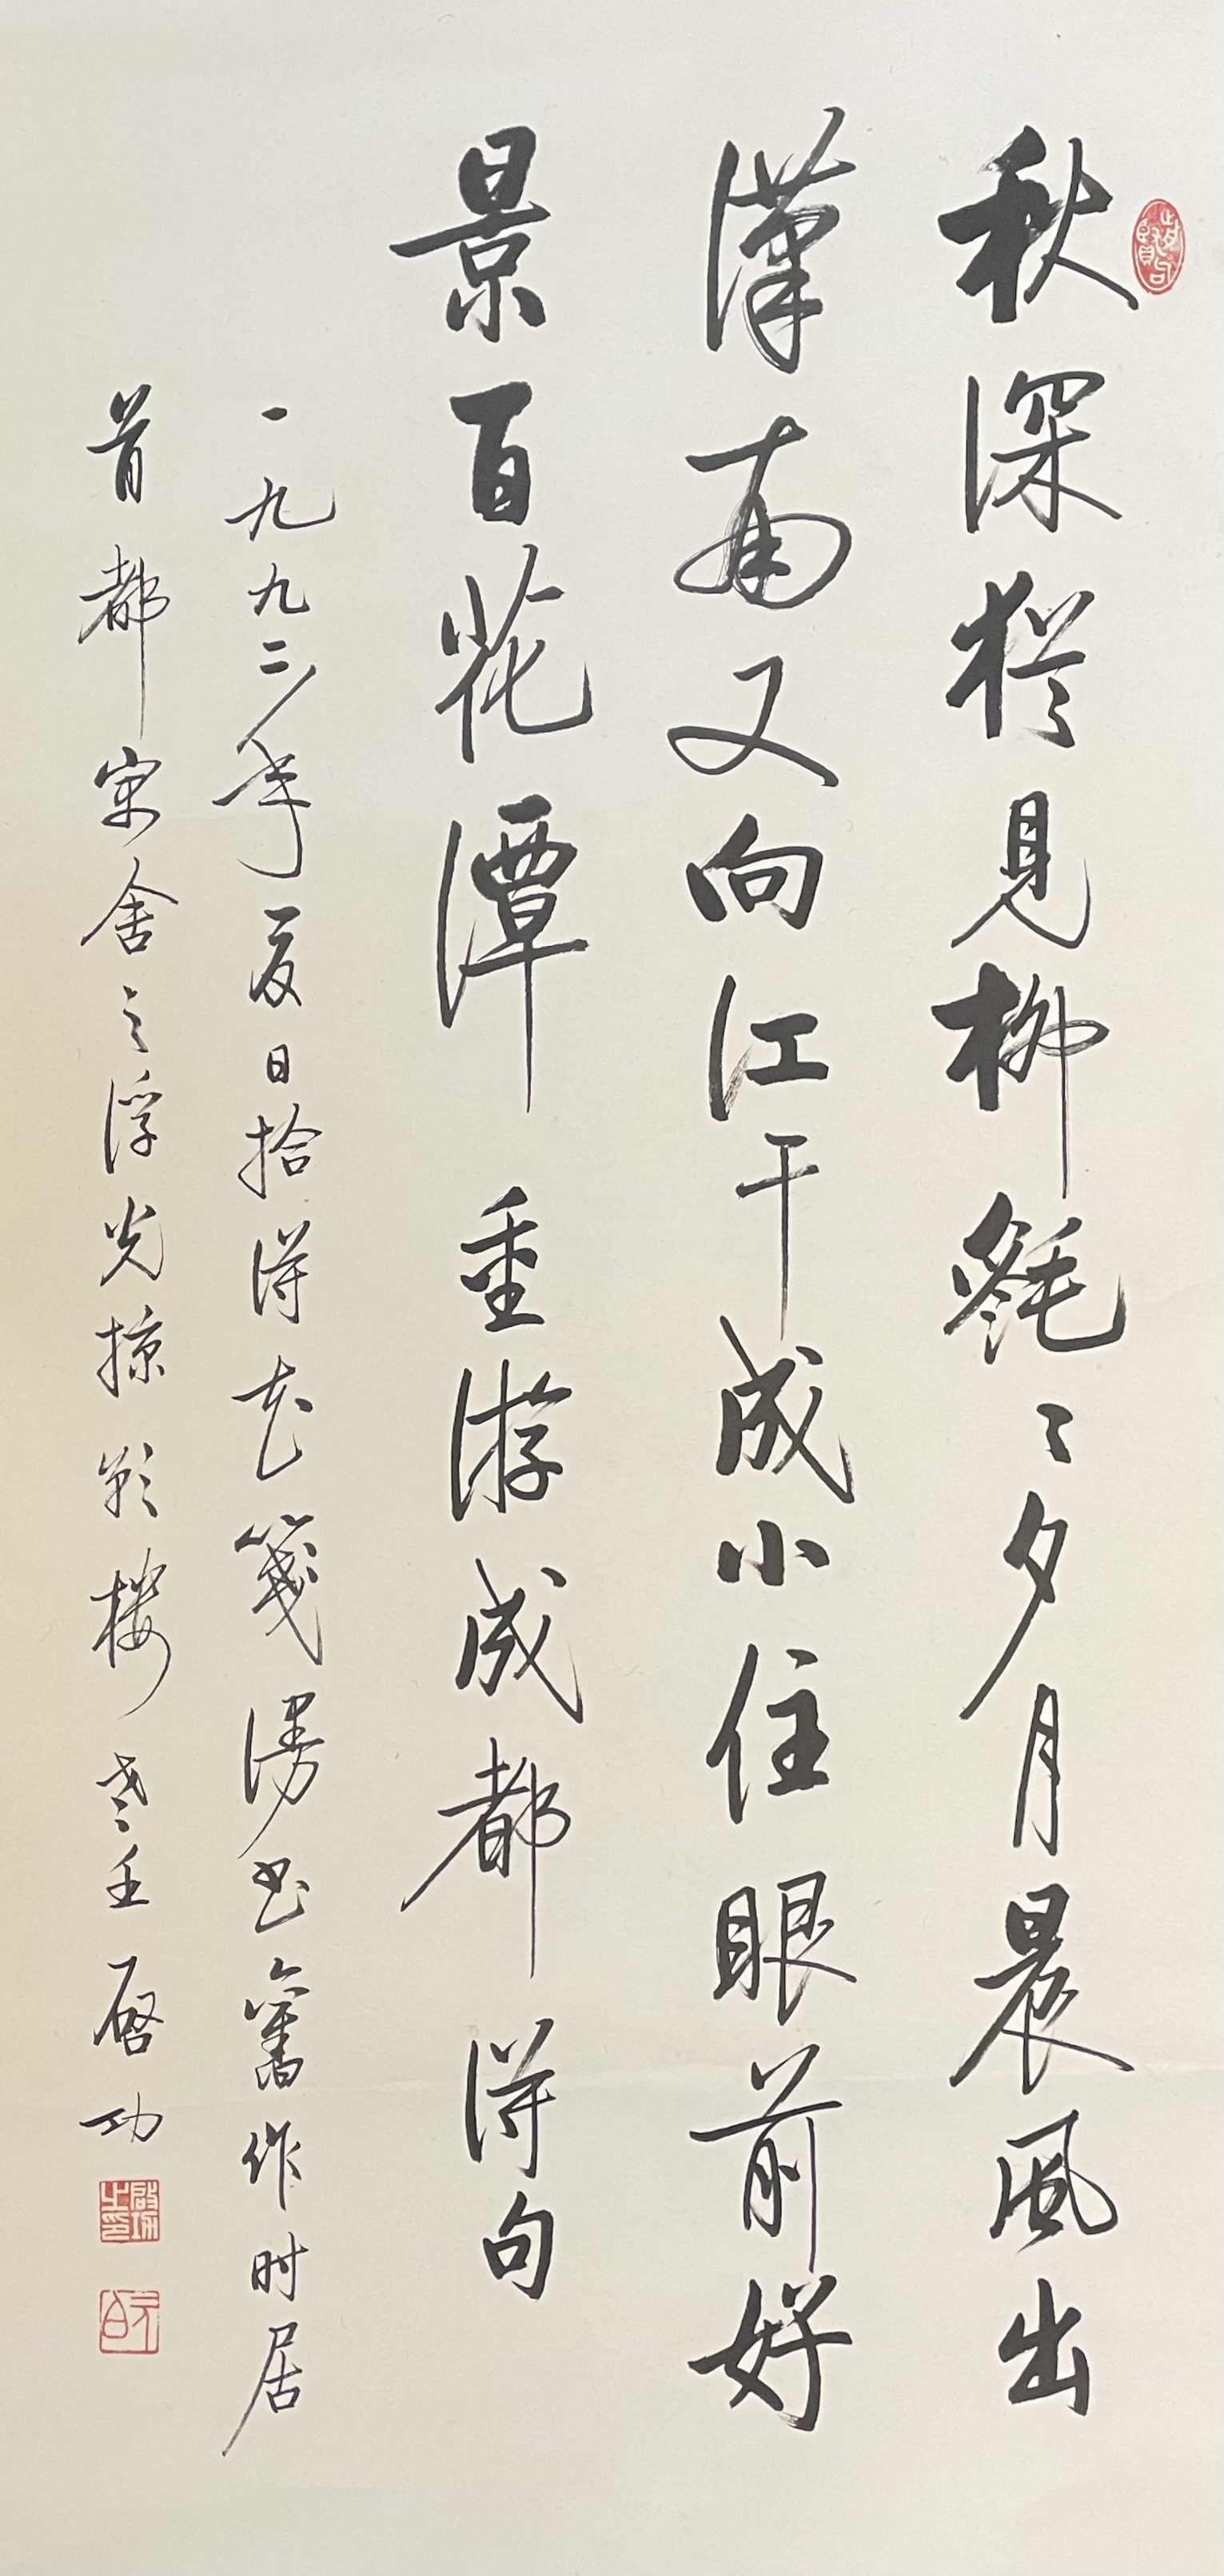 秋深犹見柳毵々夕月晨風出
漢南又向江干成小住眼前好
景百花潭 重游成都得句
一九九二年夏日拾得花箋漫书舊作时居
首都寓舍之浮光掠影樓 啓功
啟功之印
元白